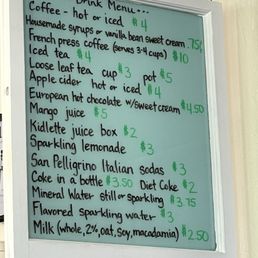 Drink Menu...
Coffee - hot or iced $4
Housemade syrups or vanilla bean sweet cream .75¢
French press coffee (serves 3-4 cups) $10
Iced tea $4
Loose leaf tea cup $3 pot $5
Apple cider hot or iced $4
European hot chocolate w/sweet cream $4.50
Mango juice $5
Kidlette juice box $2
Sparkling lemonade $3
San Pellegrino Italian sodas $3
Coke in a bottle $3.50 Diet Coke $2
Mineral Water still or sparkling $3.75
Flavored sparkling water $3
Milk (whole, 2%, oat, soy, macadamia) $2.50